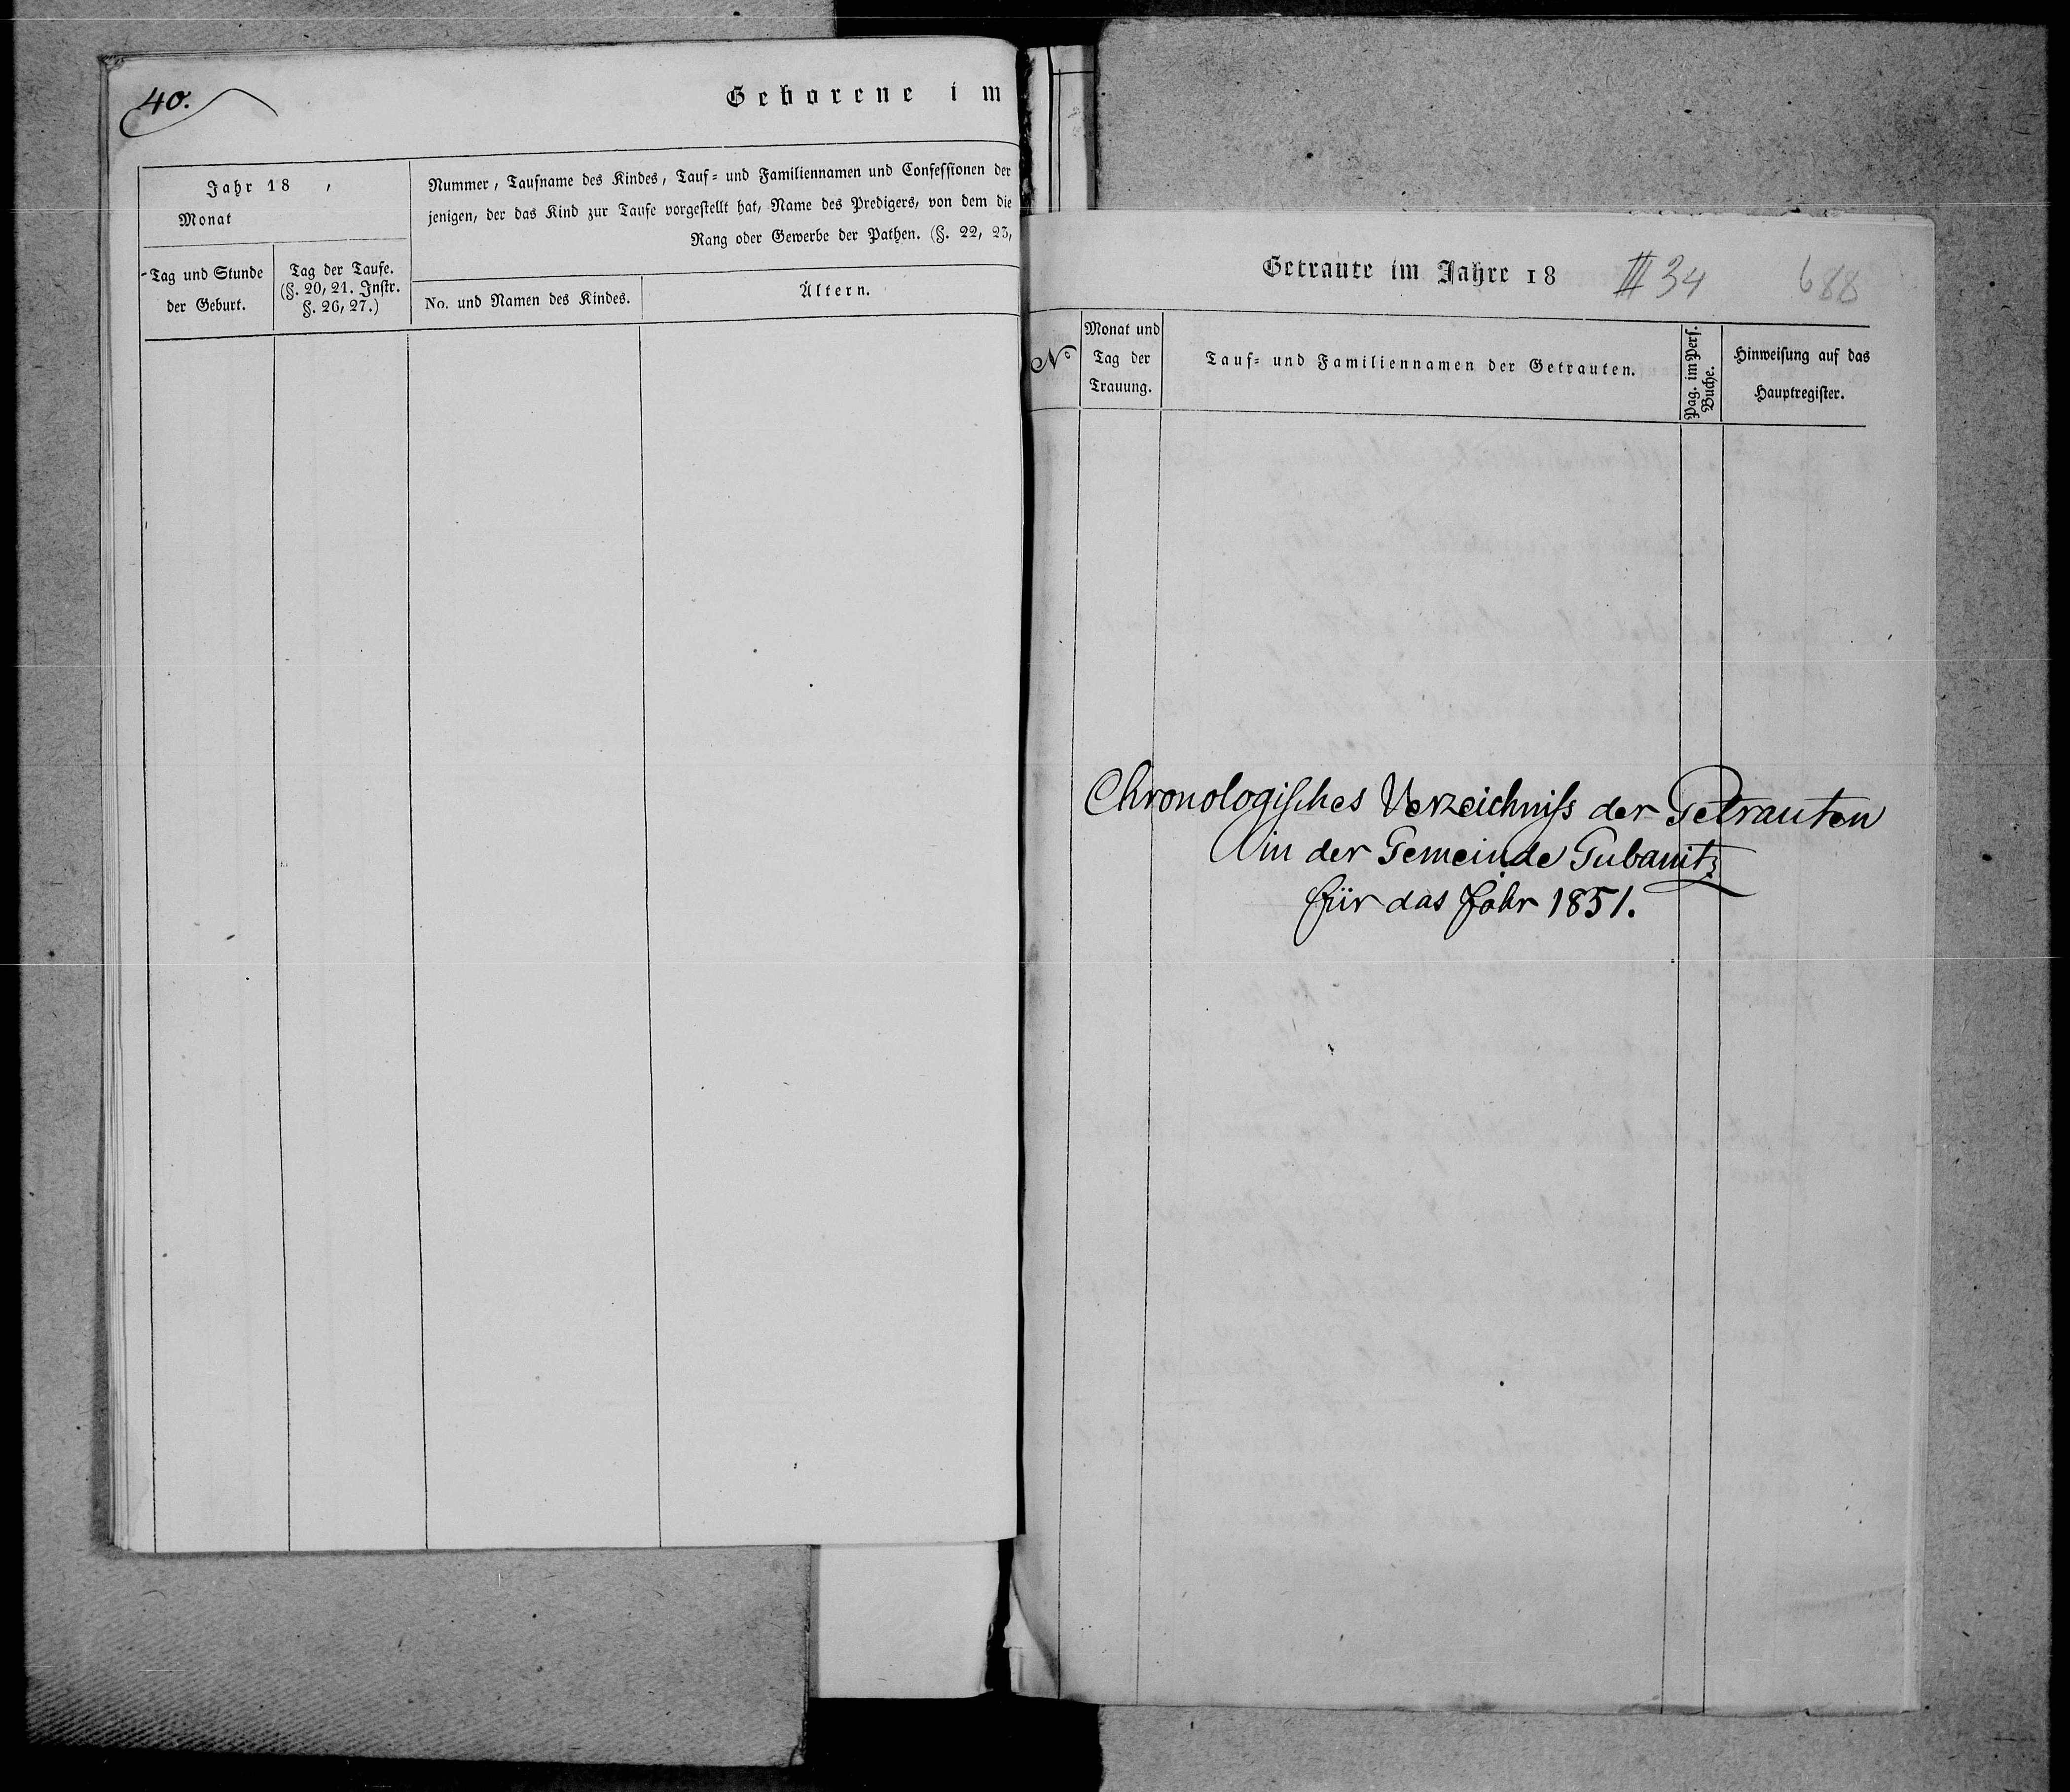 40.
Geborene im
Jahr 18 ,
Monat
Nummer, Taufname des Kindes, Tauf- und Familiennamen und Confessionen der
jenigen, der das Kind zur Taufe vorgestellt hat, Name des Predigers, von dem die
Rang oder Gewerbe der Pathen. (§. 22, 23,
Tag und Stunde
der Geburt.
Tag der Taufe.
(§. 20, 21. Instr.
§. 26, 27.)
No. und Namen des Kindes.
Ältern.
Getraute im Jahre 18
III 34
688
No
Monat und
Tag der
Trauung.
Tauf- und Familiennamen der Getrauten.
Pag. im Pers.
Buche.
Hinweisung auf das
Hauptregister.
Chronologisches Verzeichniss der Getrauten
in der Gemeinde Gubanitz
für das Jahr 1851.